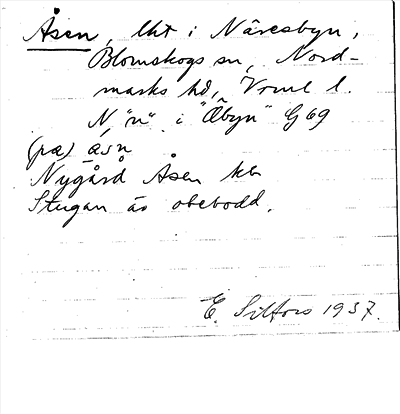 Åsen, lht i Näresbyn,
Blomskogs sn, Nord-
marks hd, Vrml l.
N "n" i "Åbyn" G 69
(pæ) åsn
Nygård Åsen kb
Stugan är obebodd.
E. Silfors 1937.